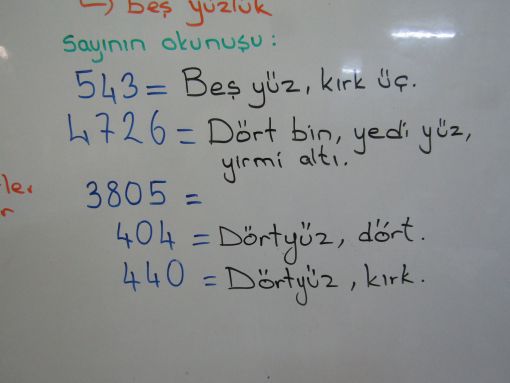 ↳ beş yüzlük
Sayının okunuşu:
543 = Beş yüz, kırk üç.
4726 = Dört bin, yedi yüz,
yirmi altı.
3805 =
404 = Dörtyüz, dört.
440 = Dörtyüz, kırk.